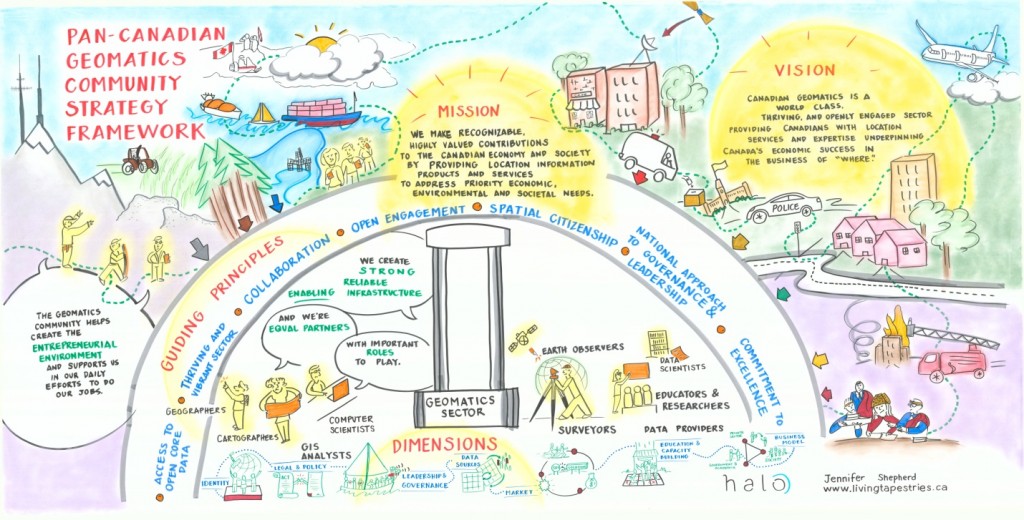 PAN-CANADIAN
GEOMATICS
COMMUNITY
STRATEGY
FRAMEWORK
MISSION
WE MAKE RECOGNIZABLE,
HIGHLY VALUED CONTRIBUTIONS
TO THE CANADIAN ECONOMY AND SOCIETY
BY PROVIDING LOCATION INFORMATION
PRODUCTS AND SERVICES
TO ADDRESS PRIORITY ECONOMIC,
ENVIRONMENTAL AND SOCIETAL NEEDS.
VISION
CANADIAN GEOMATICS IS A
WORLD CLASS,
THRIVING, AND OPENLY ENGAGED SECTOR
PROVIDING CANADIANS WITH LOCATION
SERVICES AND EXPERTISE UNDERPINNING
CANADA'S ECONOMIC SUCCESS IN
THE BUSINESS OF "WHERE".
POLICE
THE GEOMATICS
COMMUNITY HELPS
CREATE THE
ENTREPRENEURIAL
ENVIRONMENT
AND SUPPORTS US
IN OUR DAILY
EFFORTS TO DO
OUR JOBS.
GUIDING PRINCIPLES
ACCESS TO
OPEN CORE
DATA
THRIVING AND
VIBRANT SECTOR
COLLABORATION
OPEN ENGAGEMENT
SPATIAL CITIZENSHIP
NATIONAL APPROACH
TO GOVERNANCE &
LEADERSHIP
COMMITMENT TO
EXCELLENCE
WE CREATE
STRONG
RELIABLE
ENABLING INFRASTRUCTURE
AND WE'RE
EQUAL PARTNERS
WITH IMPORTANT
ROLES
TO PLAY.
GEOMATICS
SECTOR
GEOGRAPHERS
CARTOGRAPHERS
GIS
ANALYSTS
COMPUTER
SCIENTISTS
EARTH OBSERVERS
SURVEYORS
DATA
SCIENTISTS
EDUCATORS &
RESEARCHERS
DATA PROVIDERS
DIMENSIONS
IDENTITY
LEGAL & POLICY
LEADERSHIP &
GOVERNANCE
DATA
SOURCES
MARKET
EDUCATION &
CAPACITY
BUILDING
BUSINESS
MODEL
halo
Jennifer Shepherd
www.livingtapestries.ca